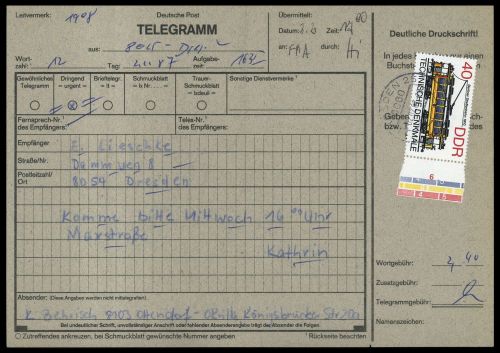 Leitvermerk: 1908
Deutsche Post
TELEGRAMM
Übermittelt:
Datum: Zeit:
an: durch:
aus:
Wort-
zahl: 12
Tag:
Aufgabe-
zeit:
Gewöhnliches
Telegramm
Dringend
= urgent =
Brieftelegr.
= lt =
Schmuckblatt
= lx Nr. . . =
Trauer-
Schmuckblatt
= lxdeuil =
Sonstige Dienstvermerke
Fernsprech-Nr.
des Empfängers:
Telex-Nr.
des Empfängers:
Empfänger
Lieschke
Straße/Nr.
Dammweg 8
Postleitzahl
Ort
8054 Dresden
Komme bitte Mittwoch 16 00 Uhr
Marstraße
Kathrin
Absender: (Diese Angaben werden nicht mitbefördert)
K. 8103 Ottendorf-Okrilla Königsbrücker Str.
Bei undeutlicher Schrift, unvollständiger Anschrift oder fehlender Absenderangabe trägt der Absender die Folgen.
Zutreffendes ankreuzen, bei Schmuckblatt gewünschte Nummer angeben
¹ Rückseite beachten
Deutliche Druckschrift!
In jedes
Buchst
Geben
bzw.
40
DDR
TECHNISCHE DENKMALE
6
Wortgebühr: 2,40
Zusatzgebühr:
Telegrammgebühr:
Namenszeichen: